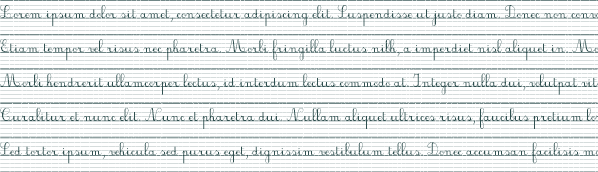 Lorem ipsum dolor sit amet, consectetur adipiscing elit. Suspendisse ut justo diam. Donec non
Etiam tempor vel risus nec pharetra. Morbi fringilla luctus nibh, a imperdiet nisl aliquet in.
Morbi hendrerit ullamcorper lectus, id interdum lectus commodo at. Integer nulla dui, volutpat
Curabitur et nunc elit. Nunc et pharetra dui. Nullam aliquet ultrices risus, faucibus pretium
Sed tortor ipsum, vehicula sed purus eget, dignissim vestibulum tellus. Donec accumsan facilisis